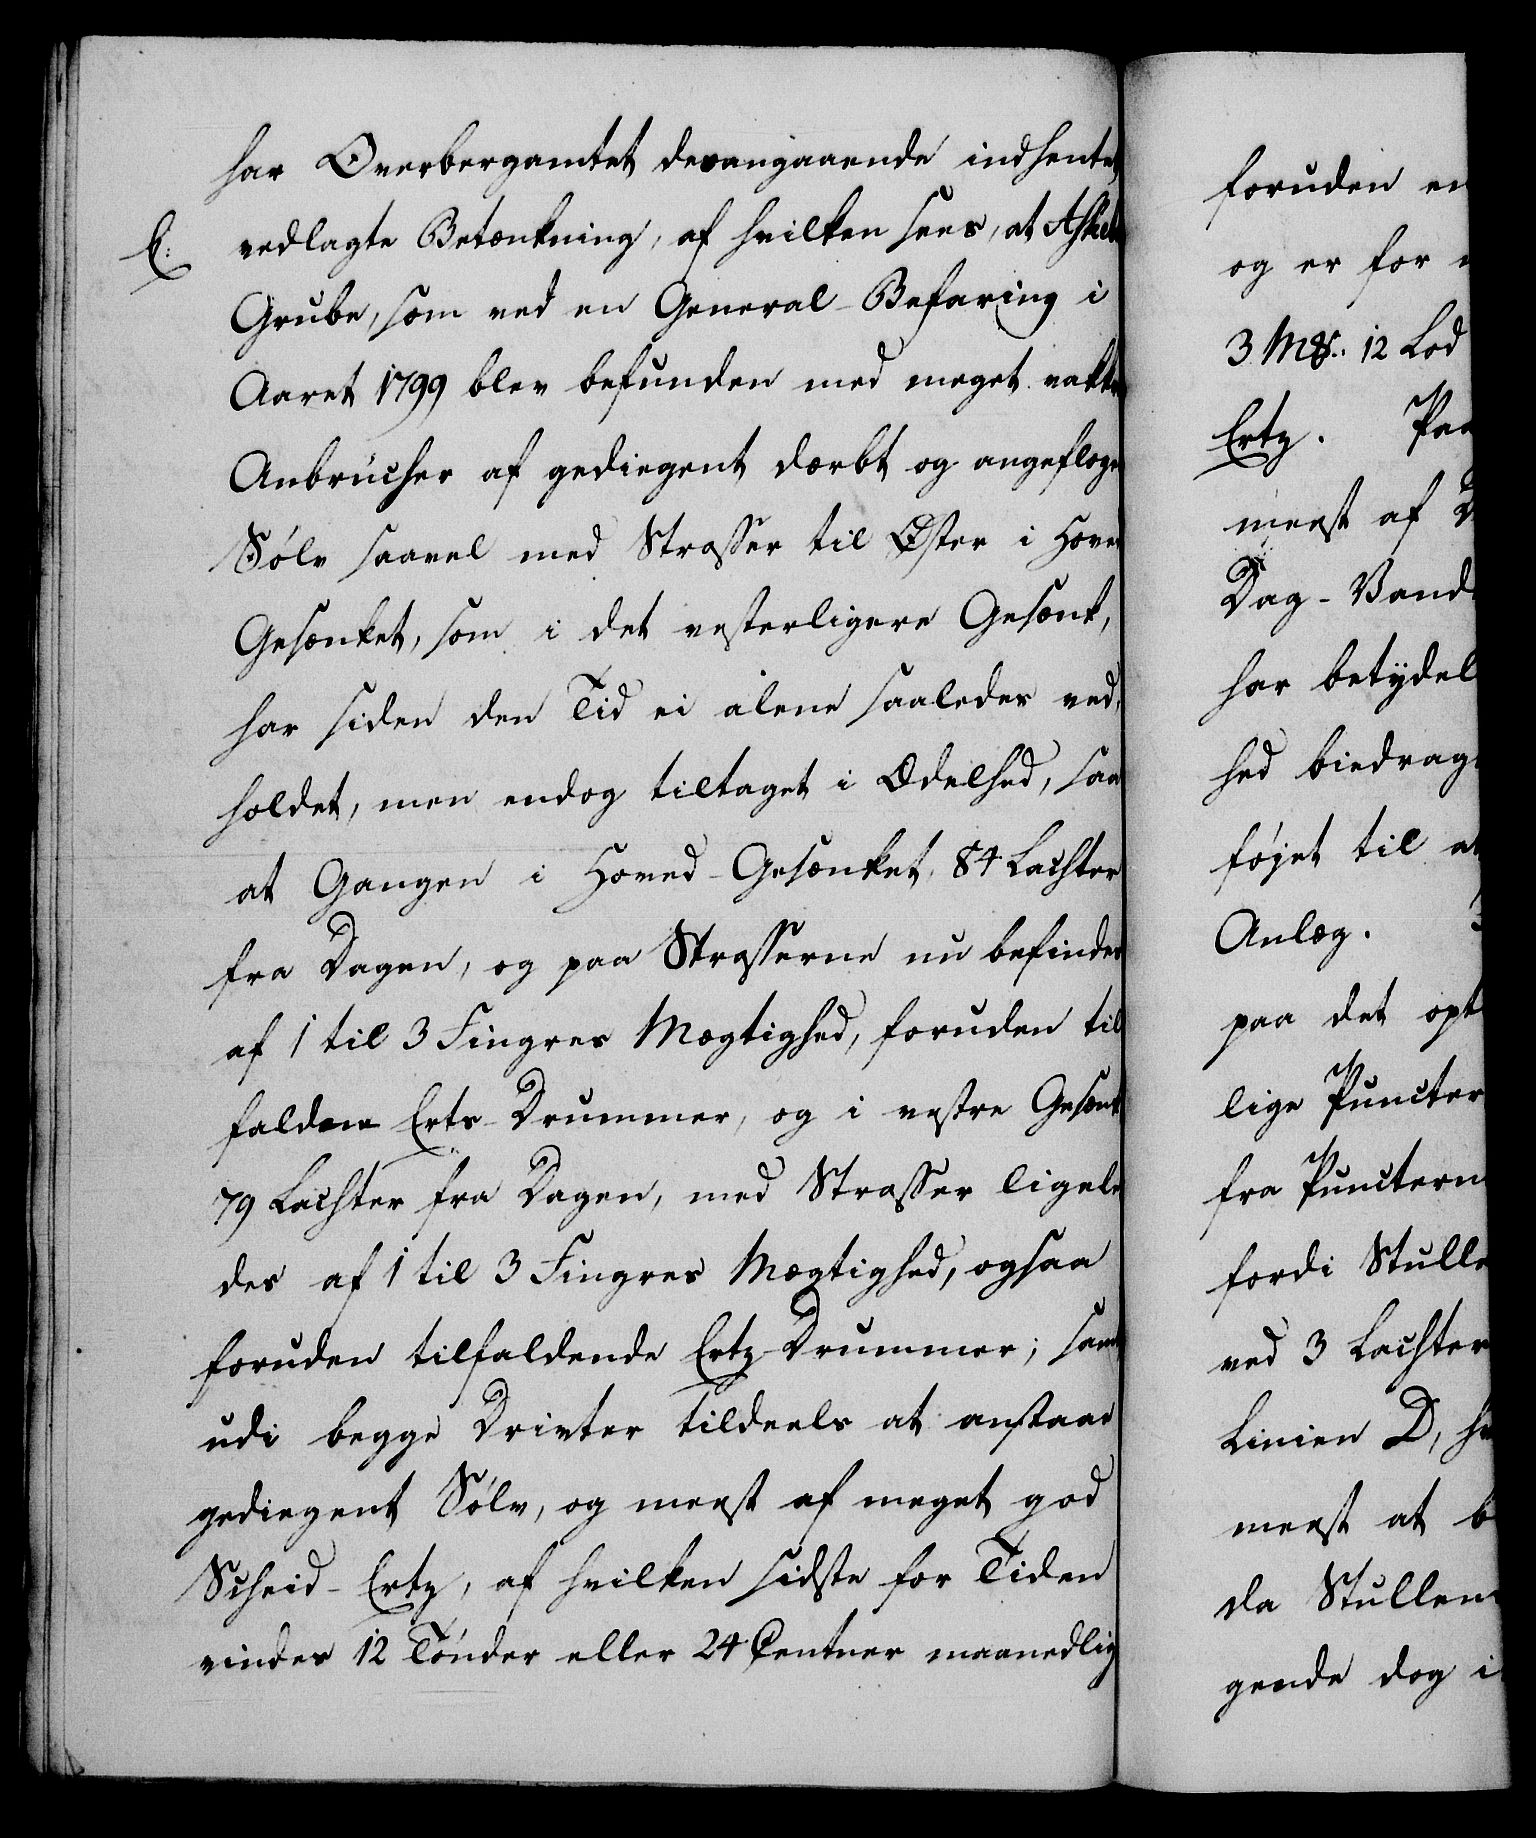 har Overbergamtet desangaaende indhentet
E: vedlagte Betænkning, af hvilken sees, at
Grube, som ved en General-Befaring i
Aaret 1799 blev befunden med meget
Anbrücher af gediegent dærbt og angefloge
Sølv saavel med Strasser til Øster i Hove
Gesænket, som i det vesterligere Gesænk,
har siden den Tid ei alene saaledes ved,
holdet, men endog tiltaget i Ædelhed, saa
at Gangen i Hoved-Gesænket, 84 Lachter
fra Dagen, og paa Strasserne nu befindes
af 1 til 3 Fingres Mægtighed, foruden til
faldene Erts-Drummer, og i vestre Gesænk
79 Lachter fra Dagen, med Strasser ligele
des af 1 til 3 Fingres Mægtighed, ogsaa
foruden tilfaldende Ertz-Drummer; samt
udi begge Drivter tildeels at anstaae
gediegent Sølv, og meest af meget god
Scheid-Ertz, af hvilken sidste for Tiden
vindes 12 Tønder eller 24 Centner maanedlig
foruden en
og er for
3 Mk: 12 Lod
Ertz. Paa
meest af
Dag-Vand
har betydel
hed biedrag
føjet til at
Anlæg.
paa det opt
lige Puncter
fra Punctern
fordi Stolle
ved 3 Lachter
Linien D, h
meest at b
da Stullen
gende dog i